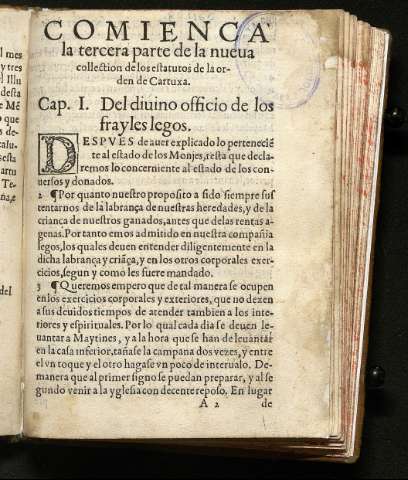 COMIENÇA
la tercera parte de la nueva
collection de los estatutos de la or-
den de Cartuxa.
Cap. I. Del diuino officio de los
frayles legos.
DESPVES de auer explicado lo perteneciē
te al estado de los Monjes, resta que decla-
remos lo concerniente al estado de los con
uersos y donados.
2 ¶Por quanto nuestro proposito a sido siempre sus
tentarnos de la labrança de nuestras heredades, y de la
criança de nuestros ganados, antes que de las rentas a-
genas. Por tanto emos admitido en nuestra compañia
legos, los quales deuen entender diligentemente en la
dicha labrança y criāça, y en los otros corporales exer-
cicios, segun y como les fuere mandado.
3 ¶Queremos empero que de tal manera se ocupen
en los exercicios corporales y exteriores, que no dexen
a sus deuidos tiempos de atender tambien a los inte-
riores y espirituales. Por lo qual cada dia se deuen le-
uantar a Maytines, y a la hora que se han de leuantar
en la casa inferior, tañase la campana dos vezes, y entre
el vn toque y el otro hagase vn poco de interualo. De-
manera que al primer signo se puedan preparar, y al se
gundo venir a la yglesia con decente reposo. En lugar
A 2 de
l mes
y tres
l Illu
desta
e Mē
o que
s de-
calu-
sesta
artu
Te-
ña, e
del